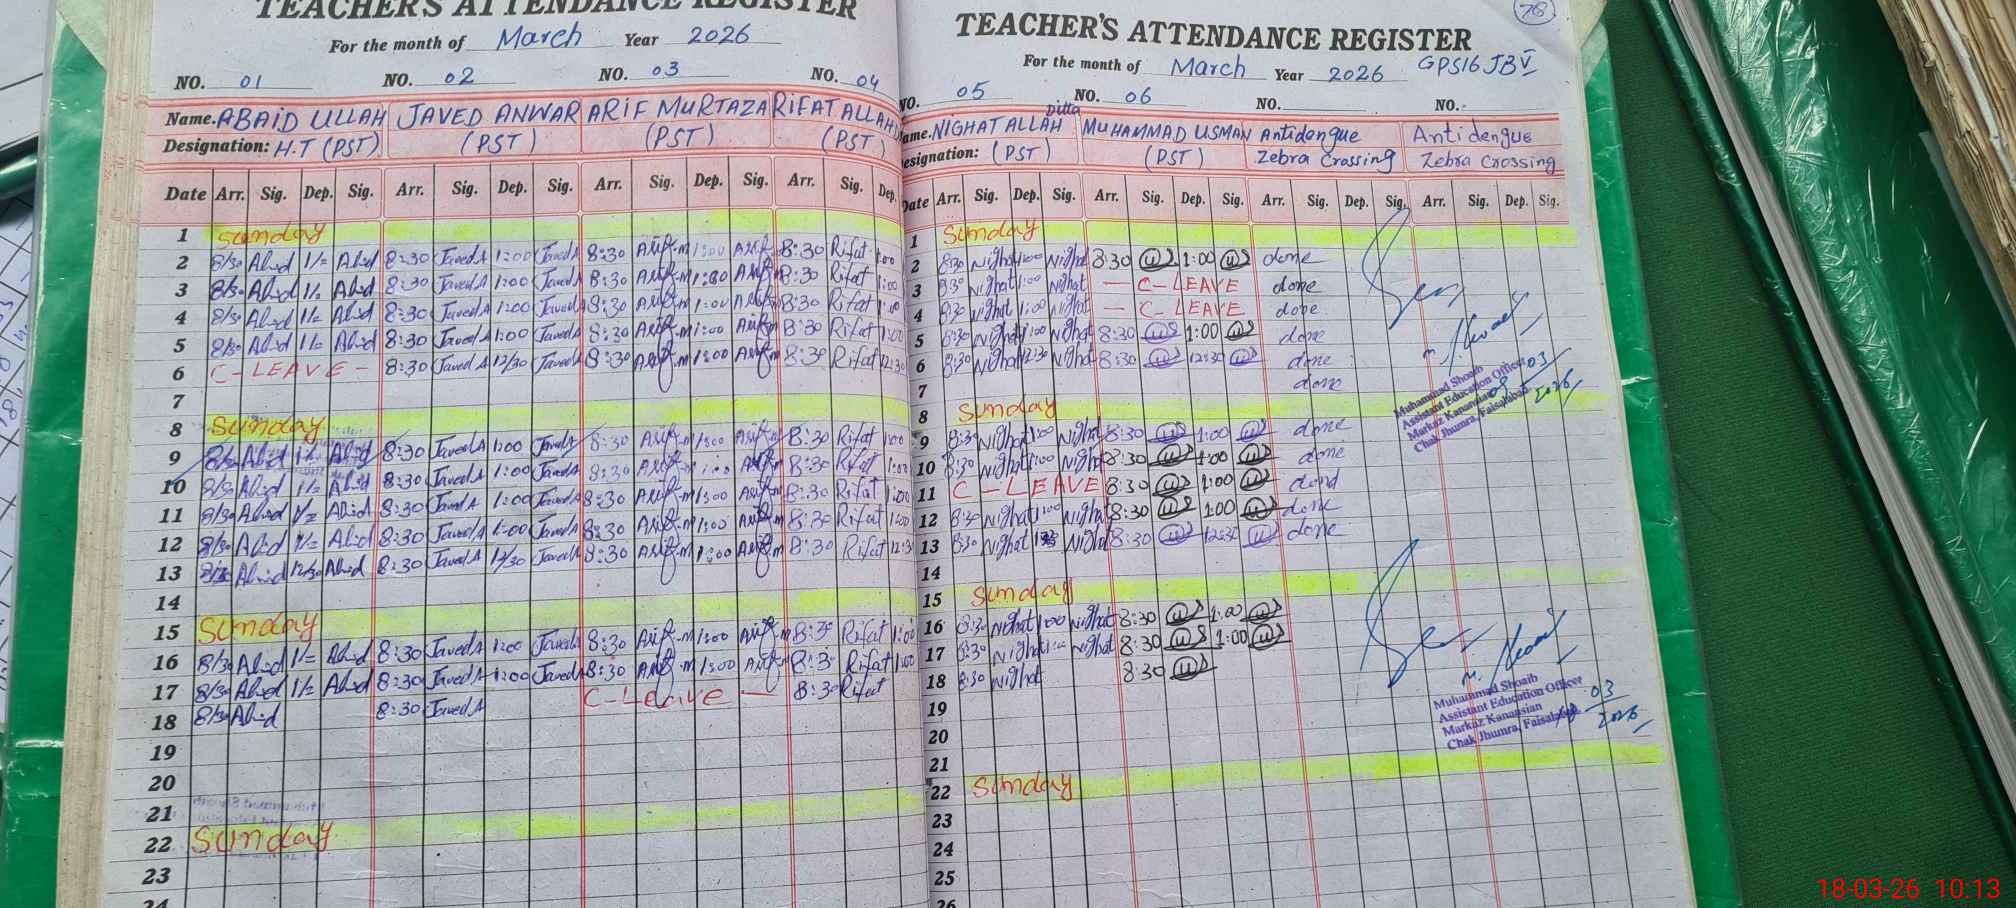 TEACHER'S ATTENDANCE REGISTER
For the month of March Year 2026
NO. 01 NO. 02 NO. 03 NO. 04
Name. ABAID ULLAH JAVED ANWAR ARIF MURTAZA RIFAT ALLAH
Designation: H.T (PST) (PST) (PST) (PST)
Date Arr. Sig. Dep. Sig. Arr. Sig. Dep. Sig. Arr. Sig. Dep. Sig. Arr. Sig. Dep.
1 Sunday
2 8/30 Abid 1/= Abid 8:30 Javed A 1:00 Javed A 8:30 Arif.m 1:00 Arif.m 8:30 Rifat 1:00
3 8/30 Abid 1/= Abid 8:30 Javed A 1:00 Javed A 8:30 Arif.m 1:00 Arif.m 8:30 Rifat 1:00
4 8/30 Abid 1/= Abid 8:30 Javed A 1:00 Javed A 8:30 Arif.m 1:00 Arif.m 8:30 Rifat 1:00
5 8/30 Abid 1/= Abid 8:30 Javed A 1:00 Javed A 8:30 Arif.m 1:00 Arif.m 8:30 Rifat 1:00
6 C-LEAVE - 8:30 Javed A 12/30 Javed A 8:30 Arif.m 1:00 Arif.m 8:30 Rifat 12:30
7
8 Sunday
9 8/30 Abid 1/= Abid 8:30 Javed A 1:00 Javed A 8:30 Arif.m 1:00 Arif.m 8:30 Rifat 1:00
10 8/30 Abid 1/= Abid 8:30 Javed A 1:00 Javed A 8:30 Arif.m 1:00 Arif.m 8:30 Rifat 1:00
11 8/30 Abid 1/= Abid 8:30 Javed A 1:00 Javed A 8:30 Arif.m 1:00 Arif.m 8:30 Rifat 1:00
12 8/30 Abid 1/= Abid 8:30 Javed A 1:00 Javed A 8:30 Arif.m 1:00 Arif.m 8:30 Rifat 1:00
13 8/30 Abid 12/30 Abid 8:30 Javed A 12/30 Javed A 8:30 Arif.m 1:00 Arif.m 8:30 Rifat 12:30
14
15 Sunday
16 8/30 Abid 1/= Abid 8:30 Javed A 1:00 Javed A 8:30 Arif.m 1:00 Arif.m 8:30 Rifat 1:00
17 8/30 Abid 1/= Abid 8:30 Javed A 1:00 Javed A 8:30 Arif.m 1:00 Arif.m 8:30 Rifat 1:00
18 8/30 Abid 8:30 Javed A C-Leave - 8:30 Rifat
19
20
21
22 Sunday
23
24
78
TEACHER'S ATTENDANCE REGISTER
For the month of March Year 2026 GPS 16 JB V
NO. 05 NO. 06 NO. NO.
Name. NIGHAT ALLAH Ditta MUHAMMAD USMAN Antidengue Antidengue
Designation: (PST) (PST) Zebra Crossing Zebra Crossing
Date Arr. Sig. Dep. Sig. Arr. Sig. Dep. Sig. Arr. Sig. Dep. Sig. Arr. Sig. Dep. Sig.
1 Sunday
2 8:30 Nighat 1:00 Nighat 8:30 1:00 done
3 8:30 Nighat 1:00 Nighat - C-LEAVE done
4 8:30 Nighat 1:00 Nighat - C-LEAVE done
5 8:30 Nighat 1:00 Nighat 8:30 1:00 done
6 8:30 Nighat 12:30 Nighat 8:30 12:30 done
7 done
8 Sunday
9 8:30 Nighat 1:00 Nighat 8:30 1:00 done
10 8:30 Nighat 1:00 Nighat 8:30 1:00 done
11 C-LEAVE 8:30 1:00 done
12 8:30 Nighat 1:00 Nighat 8:30 1:00 done
13 8:30 Nighat Nighat 8:30 12:30 done
14
15 Sunday
16 8:30 Nighat 1:00 Nighat 8:30 1:00
17 8:30 Nighat 1:00 Nighat 8:30 1:00
18 8:30 Nighat 8:30
19
20
21
22 Sunday
23
24
25
26
Muhammad Shoaib
Assistant Education Officer
Markaz Kanansian
Chak Jhumra, Faisalabad
03
2026
Muhammad Shoaib
Assistant Education Officer
Markaz Kanansian
Chak Jhumra, Faisalabad
03
2026
18-03-26 10:13